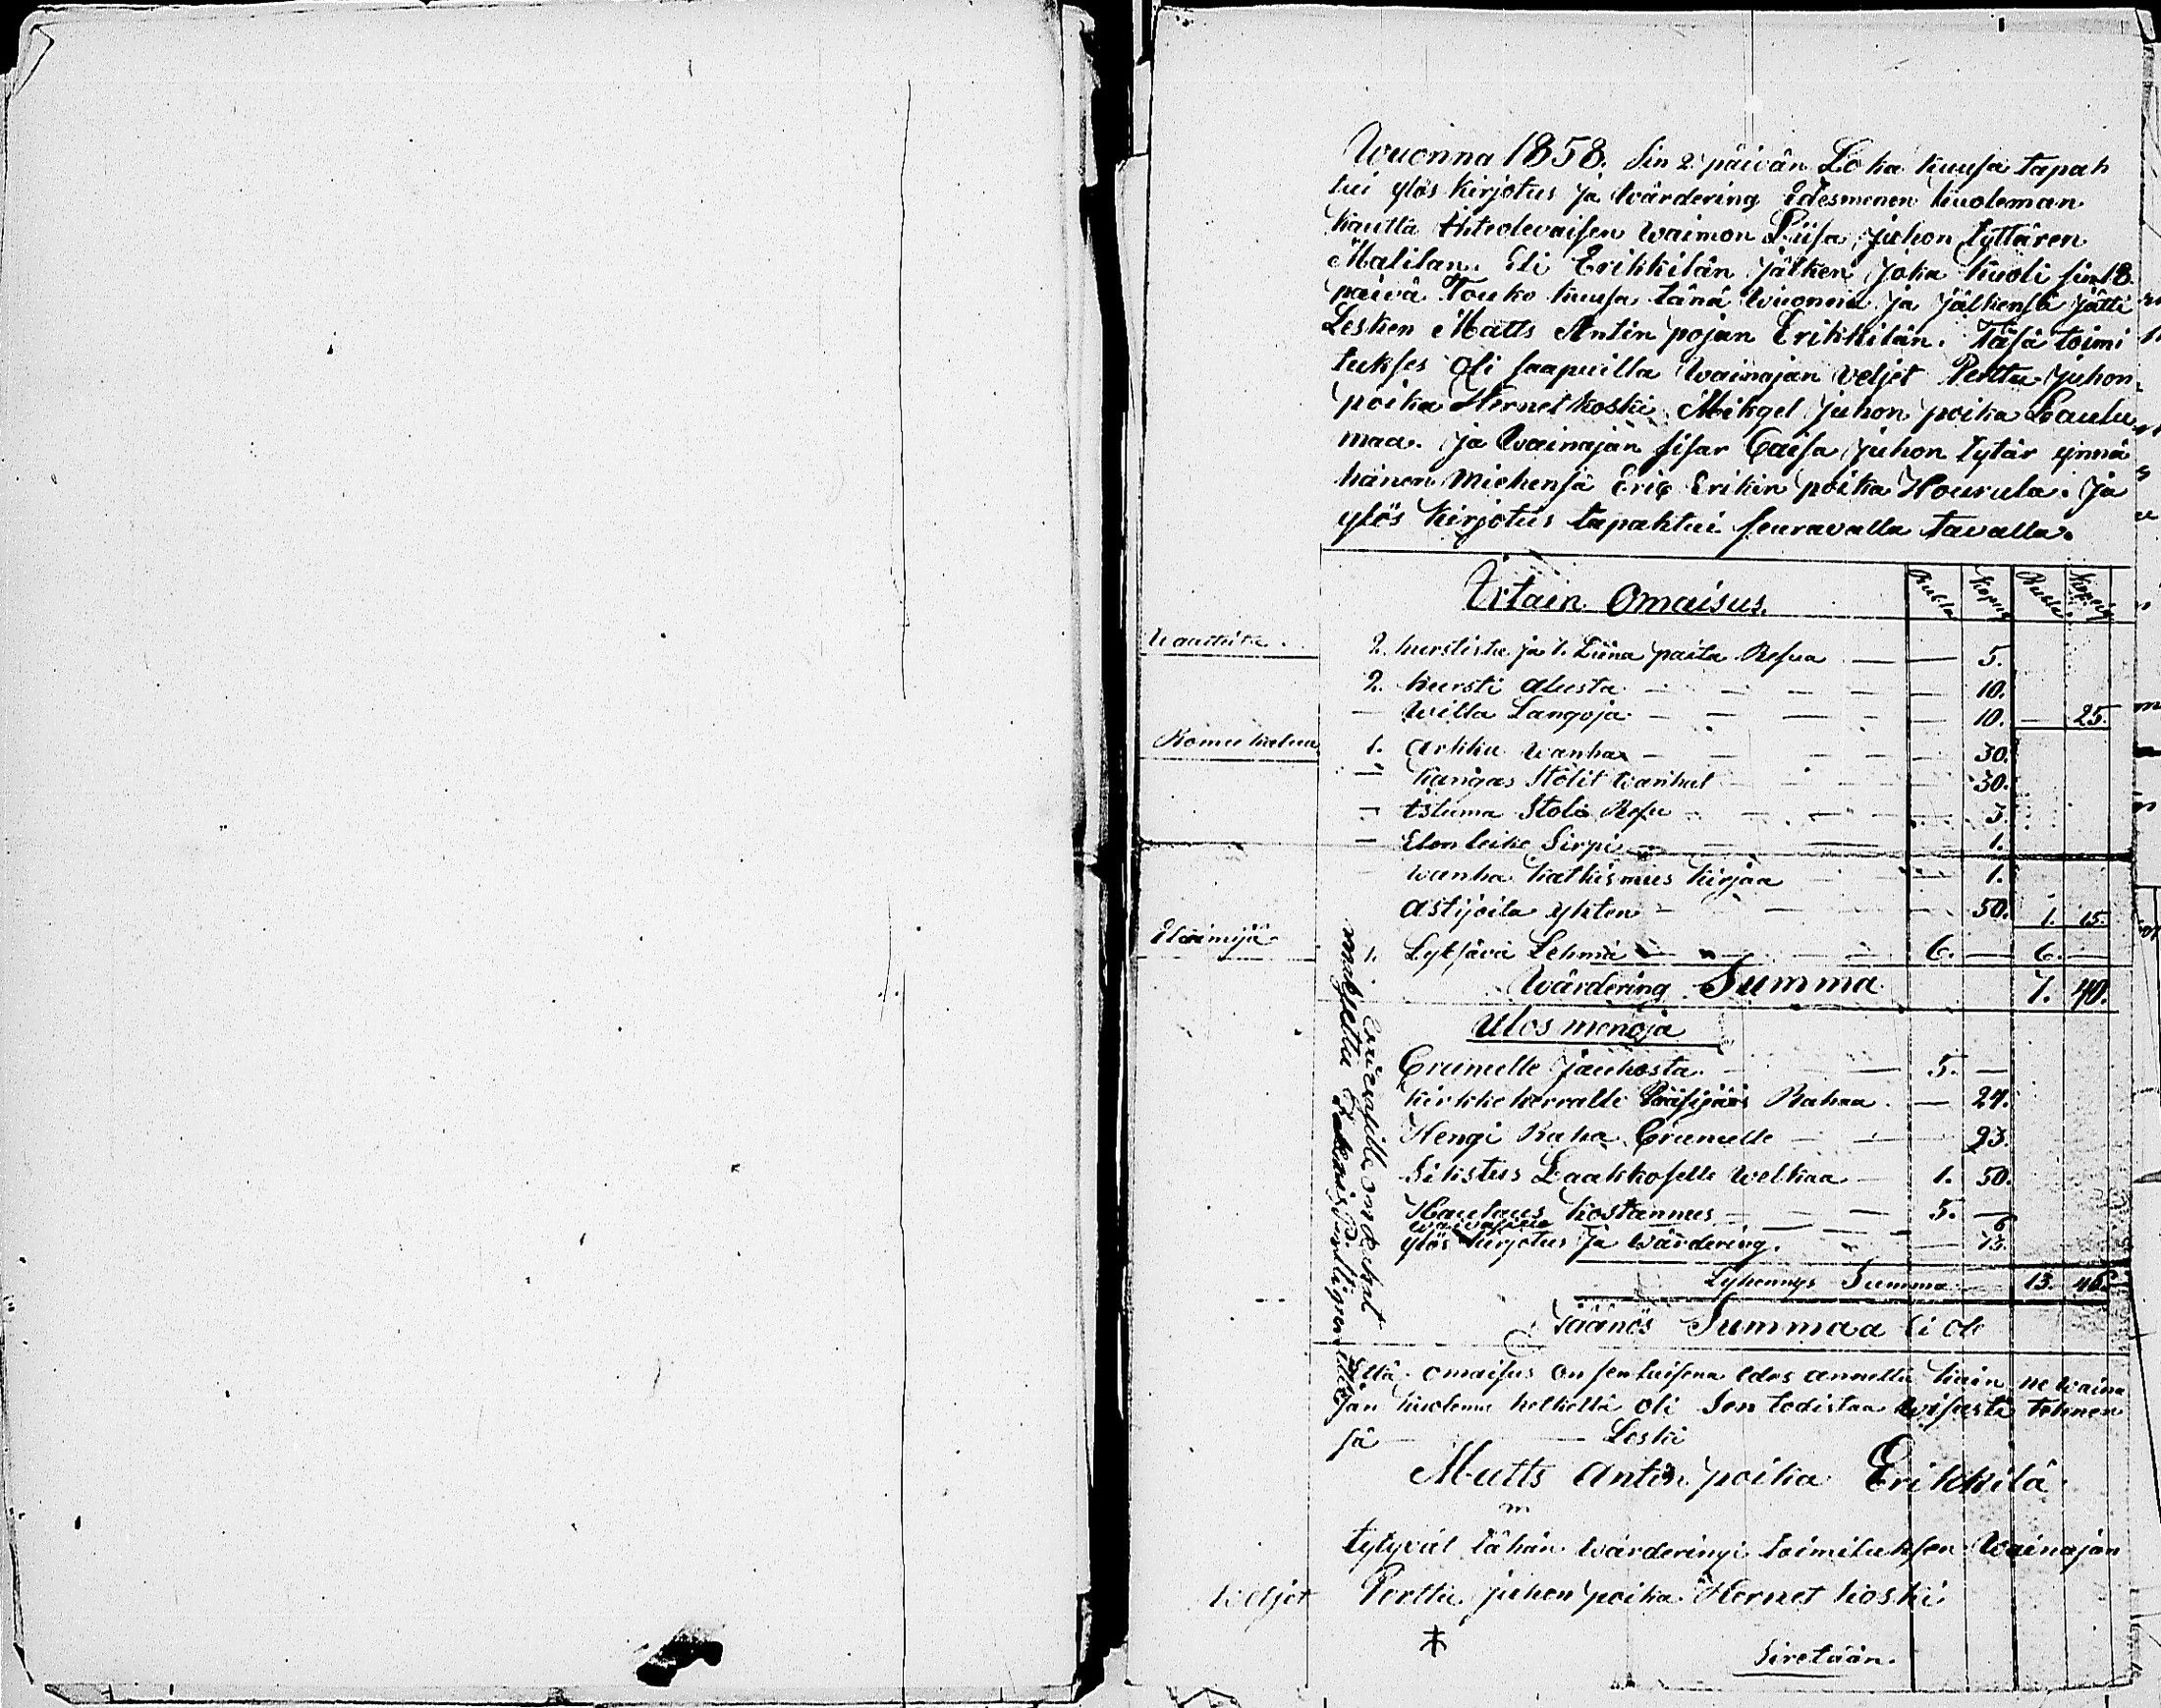 Wuonna 1858. Sin 2 päivän Loka kuusa tapah
tui ylös kirjotus ja wärdering Edesmenen kuoleman
kautta ihteolevaisen waimon Liisa Juhon tyttären
Malilan. Eli Erikkilän Jälken joka kuoli sin 18
päivä Touko kuusa tänä wuonna ja jälkensä jätti
Lesken Matts Antin pojan Erikkilän. Täsä toimi
tukses oli saapuilla wainajan veljet Perttu Juhon
poika Hernetkoski. Mikgel Juhon poika Laulu
maa. ja wainajan sisar Caisa Juhon tytär ynnä
hänen miehensä Eric Erikin poika Hourula. Ja
ylös kirjotus tapahtui seuravalla tavalla.
Irtain Omaisus. Rubla Kopeig Rubla Kopeig
Waatteita. 2. hurstista ja 1. Liina paita Resua — — 5.
2. hursti alusta — — 10.
— Willa Langoja — — 10. — 25.
Romu kalua 1. Arkku wanha — — 30.
— kangas Stolit wanhat — 30.
— istuma Stola Resu — 3.
— Elonleike Sirpi — 1.
wanha katkismus kirjaa — 1.
astijoita yhten — 50. 1. 15.
Eläimijä 1. Lypsävä Lehmä — 6. — 6. —
Wärdering Summa 7. 40.
Ulos menoja
Crunulle jauhosta — 5. —
kirkkoherralle Pääsijäis Rahaa — 24.
Hengi Raha Crunulle — 23.
Sikstus Laakkoselle welkaa — 1. 50.
Hautaus kostannus — 5. —
waivasille 6
ylös kirjotus ja wärdering. — 13.
Lyhennys Summa 13. 46.
Jäänös Summaa Ei ole
Että omaisus on senlaisena edes annettu kuin ne waina
jan kuoleman hetkellä oli Sen todistaa wisasti tehnen
sä — Leski
Matts Antin poika Erikkilä
m
tytyvät tähän wärderingi toimituksen Wainajan
Veljet Perttu juhon poika Hernet koski
Siretään.